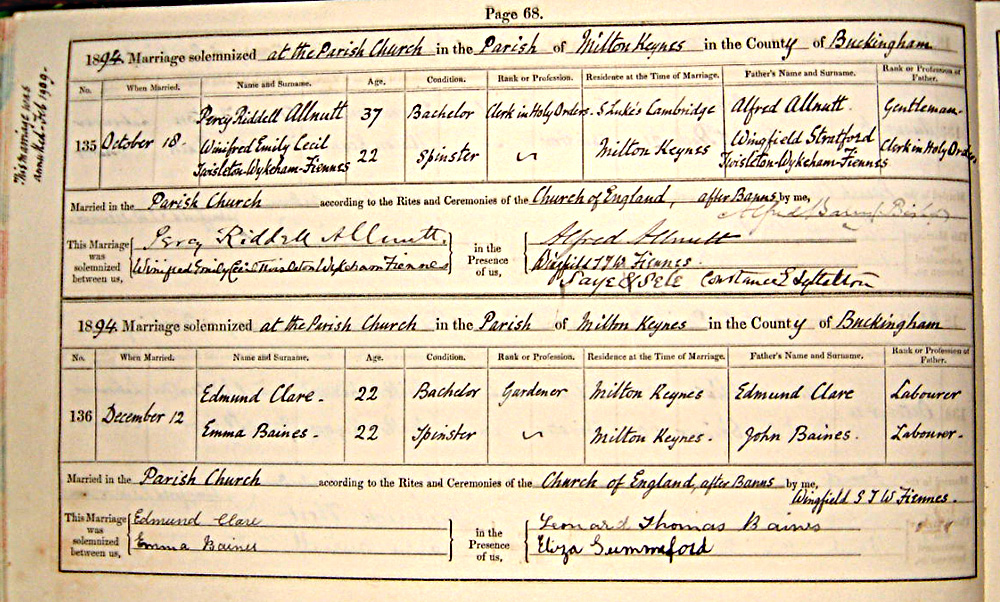 Page 68.
This marriage was
annulled - Feb 1909.
1894. Marriage solemnized at the Parish Church in the Parish of Milton Keynes in the County of Buckingham
No. When Married. Name and Surname. Age. Condition. Rank or Profession. Residence at the Time of Marriage. Father's Name and Surname. Rank or Profession of Father.
135 October 18 Percy Riddell Allnutt 37 Bachelor Clerk in Holy Orders. S Luke's Cambridge Alfred Allnutt. Gentleman
Winifred Emily Cecil Twisleton-Wykeham-Fiennes 22 Spinster Milton Keynes Wingfield Stratford Twisleton-Wykeham-Fiennes Clerk in Holy Orders
Married in the Parish Church according to the Rites and Ceremonies of the Church of England, after Banns by me,
Alfred (Bishop)
This Marriage was solemnized between us, Percy Riddell Allnutt. in the Presence of us, Alfred Allnutt
Winifred Emily Cecil Twisleton Wykeham Fiennes Wingfield S T W. Fiennes.
Saye & Sele Constance E Lyttelton
1894. Marriage solemnized at the Parish Church in the Parish of Milton Keynes in the County of Buckingham
No. When Married. Name and Surname. Age. Condition. Rank or Profession. Residence at the Time of Marriage. Father's Name and Surname. Rank or Profession of Father.
136 December 12 Edmund Clare. 22 Bachelor Gardener Milton Keynes Edmund Clare Labourer
Emma Baines. 22 Spinster Milton Keynes. John Baines. Labourer.
Married in the Parish Church according to the Rites and Ceremonies of the Church of England, after Banns by me,
Wingfield S T W Fiennes.
This Marriage was solemnized between us, Edmund Clare in the Presence of us, Leonard Thomas Baines
Emma Baines Eliza Summerford